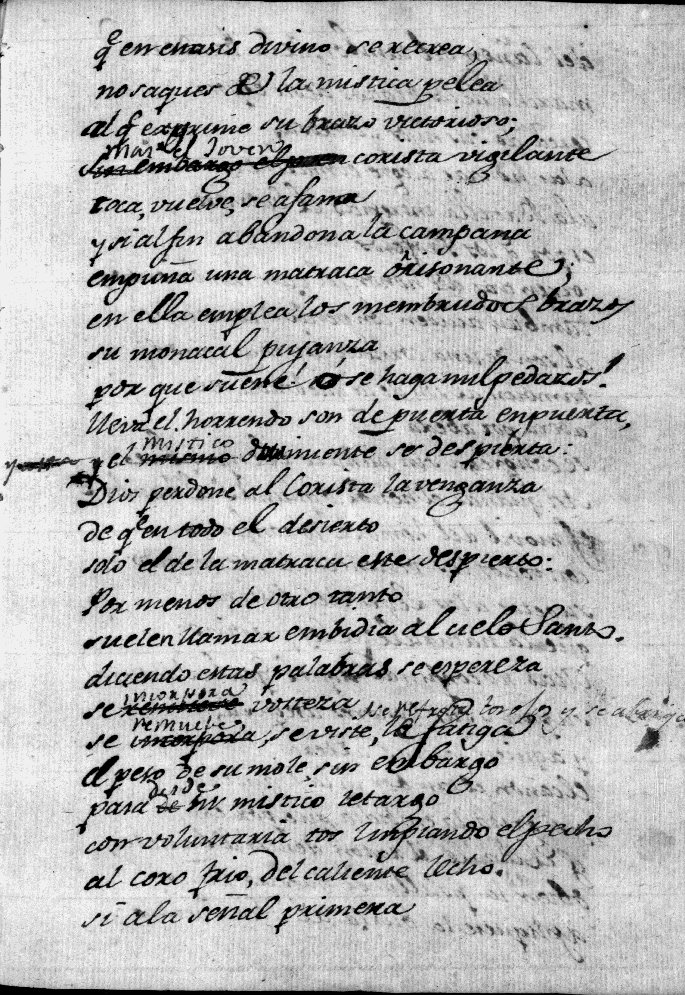 q̃ en extasis divino se recrea,
no saques de la mistica pelea
al q̃ exgrime su brazo victorioso;
Mas el Joven
sin embargo el joven corista vigilante
toca, vuelve, se afana
y si al fin abandona la campana
empuña una matraca orrisonante;
en ella emplea los membrudos brazos
su monacal pujanza
por que suene! ó se haga mil pedazos!
lleva el horrendo son de puerta en puerta,
mistico
y el mismo durmiente se despierta:
Dios perdone al Corista la venganza
de q̃ en todo el desierto
solo el de la matraca este despierto:
Por menos de otro tanto
suelen llamar embidia al celo Santo.
diciendo estas palabras se espereza
incorpora
se remueve vosteza
remueve
se incorpora, se viste, le fatiga
el peso de su mole, sin embargo
desde
para de mistico letargo
con voluntaria tos limpiando el pecho
al coro frio, del caliente lecho.
si a la señal primera